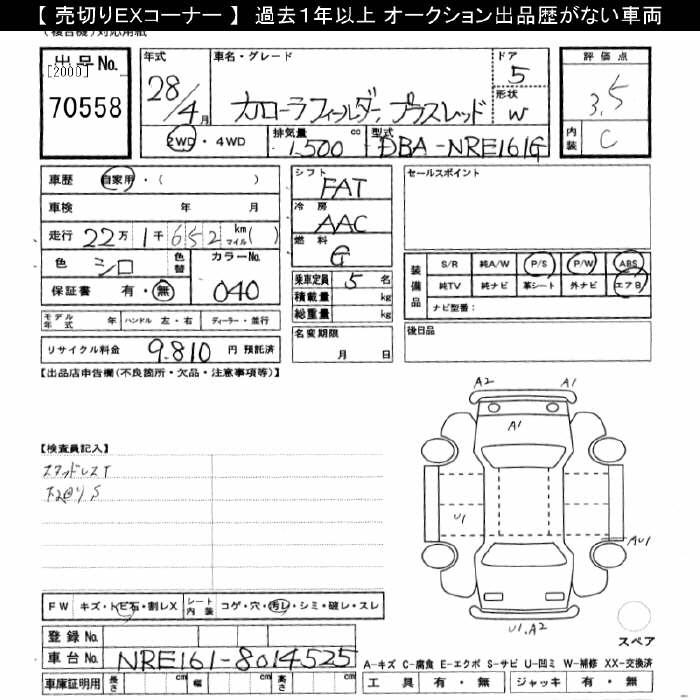 【 売切りEXコーナー 】 過去1年以上 オークション出品歴がない車両
(複合機)対応用紙
出品No.
[2000]
70558
年式
28/4月
車名・グレード
カローラフィールダー、プラスレッド
ドア
5
形状
W
2WD・4WD
排気量
1.500 cc
型式
DBA-NRE161G
評価点
3.5
内装
C
車歴 自家用・( )
車検 年 月
走行 22万 1千 652 km マイル( )
色 シロ
色替
カラーNo.
040
保証書 有・無
モデル年式 年 ハンドル 左・右 ディーラー・並行
リサイクル料金 9.810 円 預託済
シフト
FAT
冷房
AAC
燃料
G
乗車定員 5 名
積載量 kg
総重量 kg
名変期限
月 日
セールスポイント
装備品
S/R 純A/W P/S P/W ABS
純TV 純ナビ 革シート 外ナビ エアB
ナビ型番:
後日品
【出品店申告欄(不良箇所・欠品・注意事項等)】
【検査員記入】
スタッドレスT
下回りS
A2 A1
A1
U1
AU1
U1.A2
スペア
FW キズ・トビ石・割レX シート内装 コゲ・穴・汚レ・シミ・破レ・スレ
登録No.
車台No. NRE161-8014525
車庫証明用 長さ cm 幅 cm 高さ cm
A-キズ C-腐食 E-エクボ S-サビ U-凹ミ W-補修 XX-交換済
工具 有・無 ジャッキ 有・無